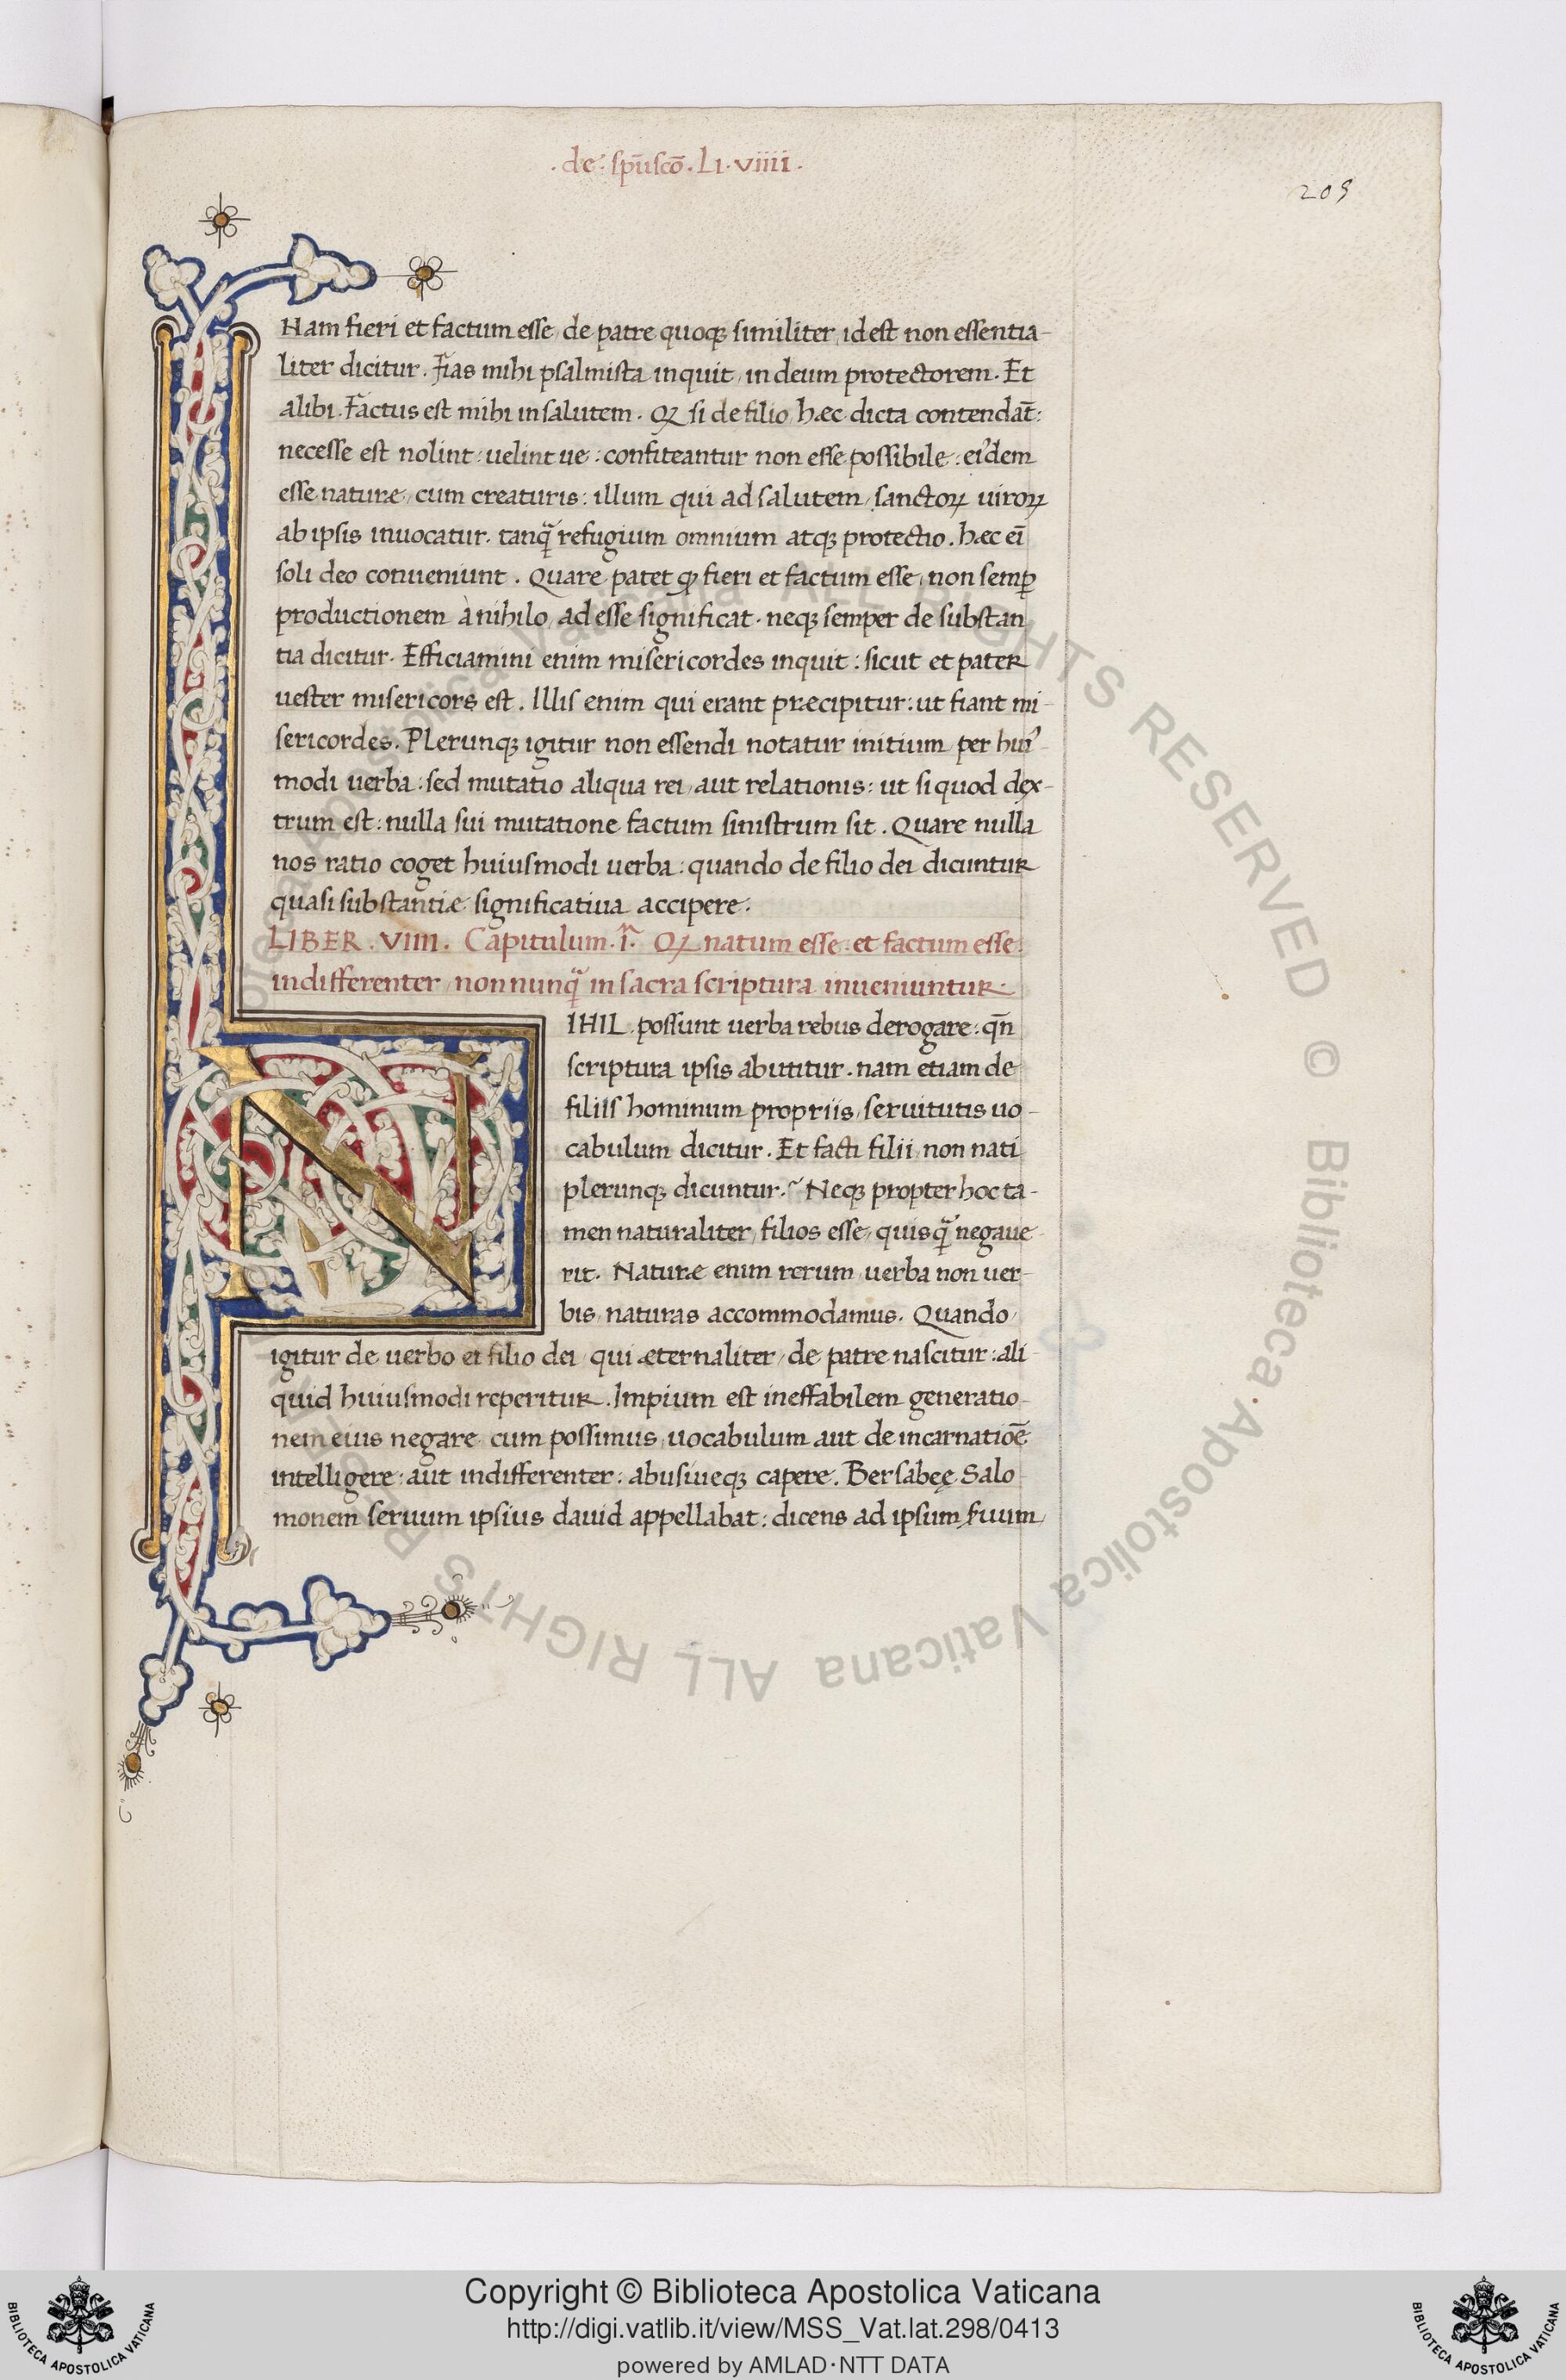 .de.sp̄uscō.LI.viiii.
205
Nam fieri et factum esse, de patre quoqꝫ similiter, idest non essentia-
liter dicitur. Fias mihi psalmista inquit, in deum protectorem. Et
alibi. Factus est mihi in salutem. Qꝫ si de filio, hæc dicta contendāt:
necesse est nolint: uelint ue: confiteantur non esse possibile: eiꝰdem
esse naturæ, cum creaturis: illum qui ad salutem, sanctoꝝ uiroꝝ
ab ipsis inuocatur. tanq̃ refugium omnium atqꝫ protectio. hæc eī
soli deo conueniunt. Quare patet ꝙ fieri et factum esse, non semꝑ
productionem à nihilo, ad esse significat. neqꝫ semper de substan
tia dicitur. Efficiamini enim misericordes inquit: sicut et pater
uester misericors est. Illis enim qui erant præcipitur: ut fiant mi-
sericordes. Plerunqꝫ igitur non essendi notatur initium per huiꝰ-
modi uerba: sed mutatio aliqua rei, aut relationis: ut si quod dex-
trum est: nulla sui mutatione factum sinistrum sit. Quare nulla
nos ratio coget huiusmodi uerba: quando de filio dei dicuntur
quasi substantiæ significatiua accipere.
LIBER. VIIII. Capitulum. I. Qꝫ natum esse: et factum esse:
indifferenter, nonnunq̃ in sacra scriptura inueniuntur.
NIHIL possunt uerba rebus derogare: qn̄
scriptura ipsis abutitur. nam etiam de
filiis hominum propriis, seruitutis uo-
cabulum dicitur. Et facti filii, non nati
plerunqꝫ dicuntur. Neqꝫ propter hoc ta-
men naturaliter, filios esse, quisq̃ negaue-
rit. Naturæ enim rerum, uerba non uer-
bis, naturas accommodamus. Quando,
igitur de uerbo et filio dei, qui æternaliter, de patre nascitur: ali-
quid huiusmodi reperitur. Impium est ineffabilem generatio-
nem eius negare cum possimus, uocabulum aut de incarnatiōe
intelligere: aut indifferenter: abusiueqꝫ capere. Bersabeę Salo-
monem seruum ipsius dauid appellabat: dicens ad ipsum, suum,
Biblioteca Apostolica Vaticana ALL RIGHTS RESERVED © Biblioteca Apostolica Vaticana ALL RIGHTS RESERVED
Copyright © Biblioteca Apostolica Vaticana
http://digi.vatlib.it/view/MSS_Vat.lat.298/0413
powered by AMLAD·NTT DATA
BIBLIOTECA APOSTOLICA VATICANA
BIBLIOTECA APOSTOLICA VATICANA